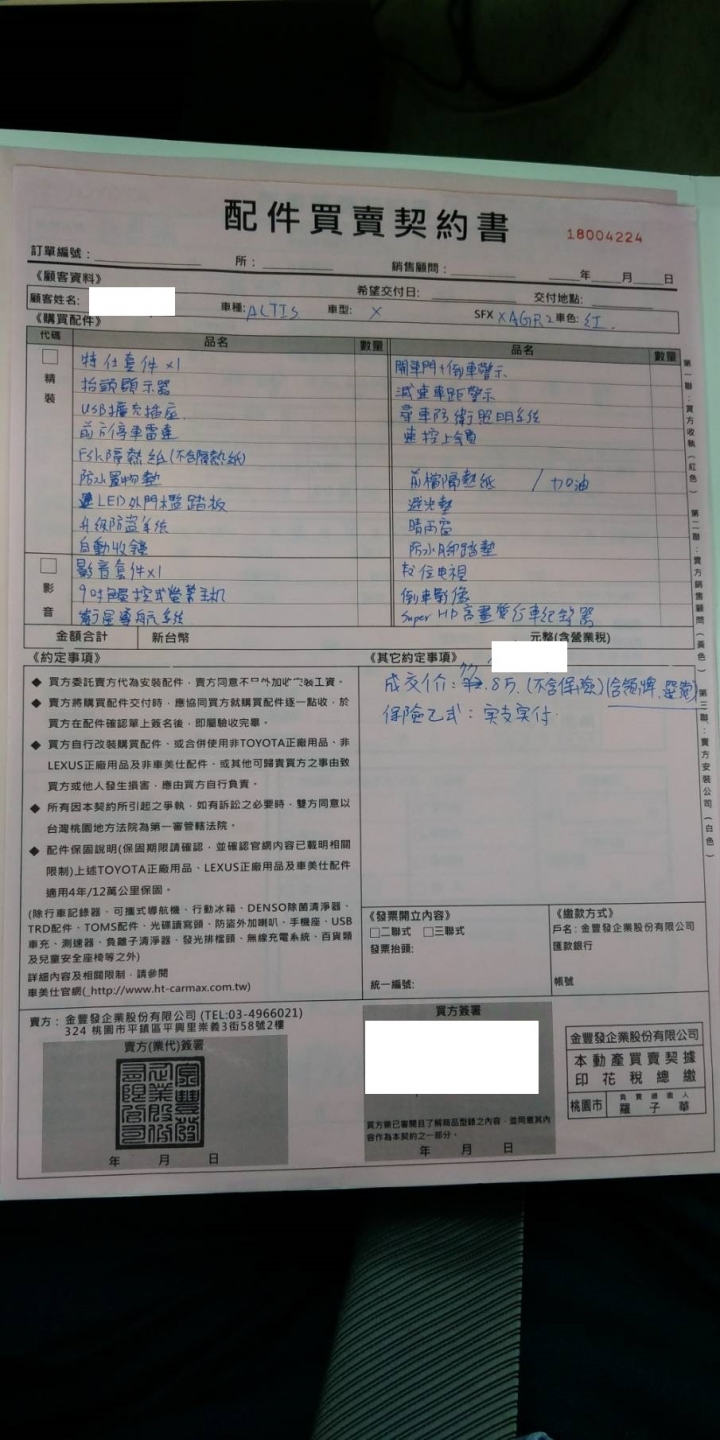 配件買賣契約書
18004224
訂單編號：
所：
銷售顧問：
年 月 日
《顧客資料》
希望交付日：
交付地點：
顧客姓名：
車種：ALTIS
車型：X
SFX XAGR2 車色：紅
《購買配件》
代碼 品名 數量 品名 數量
精裝
特仕套件x1
抬頭顯示器
USB擴充插座
前方停車雷達
FSK隔熱紙(不含隔熱紙)
防水置物墊
LED外門檻踏板
升級防盜系統
自動收鏡
開車門+倒車警示
減速車距警示
尋車防衛照明系統
速控上鎖
前檔隔熱紙 / 加油
避光墊
晴雨窗
防水腳踏墊
影音
影音套件x1
9吋觸控式螢幕主機
衛星導航系統
數位電視
倒車顯像
Super HD高畫質行車紀錄器
金額合計 新台幣 元整(含營業稅)
《約定事項》
◆ 買方委託賣方代為安裝配件，賣方同意不另外加收安裝工資。
◆ 賣方將購買配件交付時，應協同買方就購買配件逐一點收，於
買方在配件確認單上簽名後，即屬驗收完畢。
◆ 買方自行改裝購買配件、或合併使用非TOYOTA正廠用品、非
LEXUS正廠用品及非車美仕配件，或其他可歸責買方之事由致
買方或他人發生損害，應由買方自行負責。
◆ 所有因本契約所引起之爭執，如有訴訟之必要時，雙方同意以
台灣桃園地方法院為第一審管轄法院。
◆ 配件保固說明(保固期限請確認，並確認官網內容已載明相關
限制)上述TOYOTA正廠用品、LEXUS正廠用品及車美仕配件
適用4年/12萬公里保固。
(除行車記錄器、可攜式導航機、行動冰箱、DENSO除菌清淨器、
TRD配件、TOMS配件、光碟讀寫頭、防盜外加喇叭、手機座、USB
車充、測速器、負離子清淨器、發光排檔頭、無線充電系統、百貨類
及兒童安全座椅等之外)
詳細內容及相關限制，請參閱
車美仕官網(_http://www.ht-carmax.com.tw)
《其它約定事項》
成交价：77.8万.(不含保險)(含領牌.
保險乙式：実支実付
《發票開立內容》
□二聯式 □三聯式
發票抬頭：
統一編號：
《繳款方式》
戶名：金豐發企業股份有限公司
匯款銀行
帳號
賣方：金豐發企業股份有限公司 (TEL:03-4966021)
324 桃園市平鎮區平興里崇義3街58號2樓
賣方(業代)簽署
年 月 日
買方簽署
買方業已審閱且了解商品型錄之內容，並同意其內
容作為本契約之一部分。
年 月 日
金豐發企業股份有限公司
本動產買賣契據
印花稅總繳
桃園市
負責人
羅子華
第一聯：賣方收執(紅色)
第二聯：賣方銷售顧問(黃色)
第三聯：賣方安裝公司(白色)